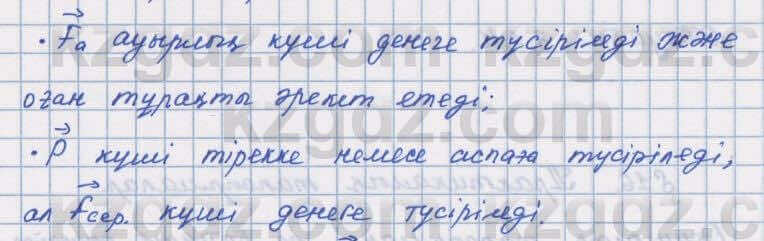 · F⃗а ауырлық күші денеге түсірілмді және
оған тұрақты әрекет етеді;
· P⃗ күші тірекке немесе аспаға түсіріледі,
ал F⃗сер. күші денеге түсірілмді.
kzgdz.com